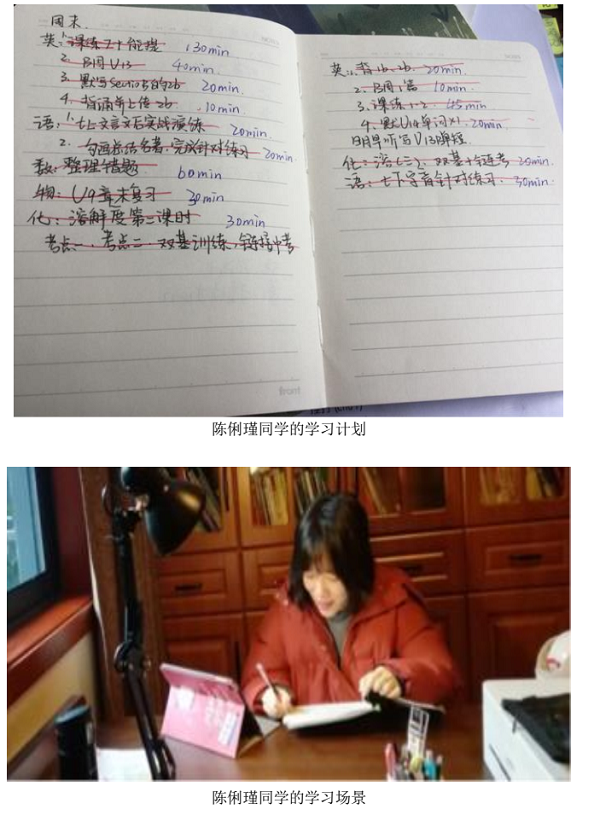 周末
英:1.课练7十能提 130min
2.B周U13 40min
3.默写SectionB的2b 20min
4.背诵并上传2b 10min
语:1.七上文言文后实战演练 20min
2.勾画总结名著,完成针对练习 20min
数:整理错题 60min
物:U9章末复习 30min
化:溶解度第二课时 30min
考点一、考点二、双基训练,链接中考
英:1.背1b、2b 20min
2.B周1篇 10min
3.课练1-2 45min
4.默U14单词x1 20min
明早听写U13牌短
化:溶(二)、双基+链考 20min
语:七下字音针对练习 30min
陈俐瑾同学的学习计划
陈俐瑾同学的学习场景